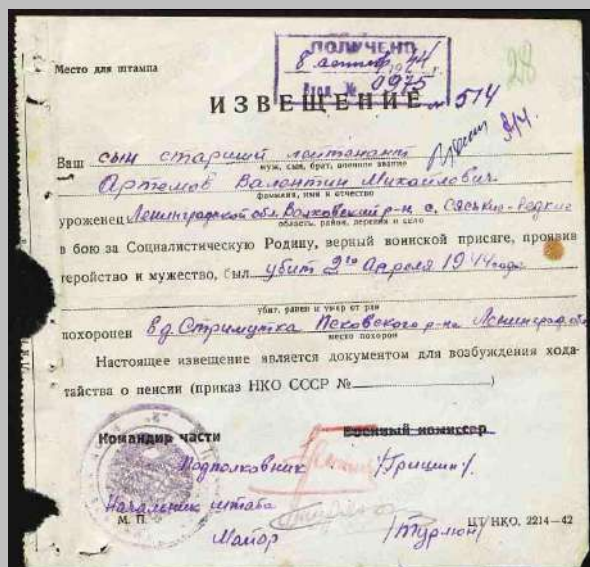 ПОЛУЧЕНО
Место для штампа
8 1944
Вход. № 0975
28
ИЗВЕЩЕНИЕ № 514
Ваш сын старший лейтенант
муж, сын, брат, военное звание
Артемов Валентин Михайлович
фамилия, имя и отчество
уроженец Ленинградской обл. Волховский р-н с. Сяські-Рядкие
область, район, деревня и село
в бою за Социалистическую Родину, верный воинской присяге, проявив
геройство и мужество, был убит 2го Апреля 1944 года
убит, ранен и умер от ран
похоронен в д. Стримутка Псковского р-на Ленинград. обл
место похорон
Настоящее извещение является документом для возбуждения хода-
тайства о пенсии (приказ НКО СССР № )
Командир части Военный комиссар
Подполковник /Гришин/
Начальник штаба
М. П. ЦТ/НКО. 2214—42
Майор /Турлюн/